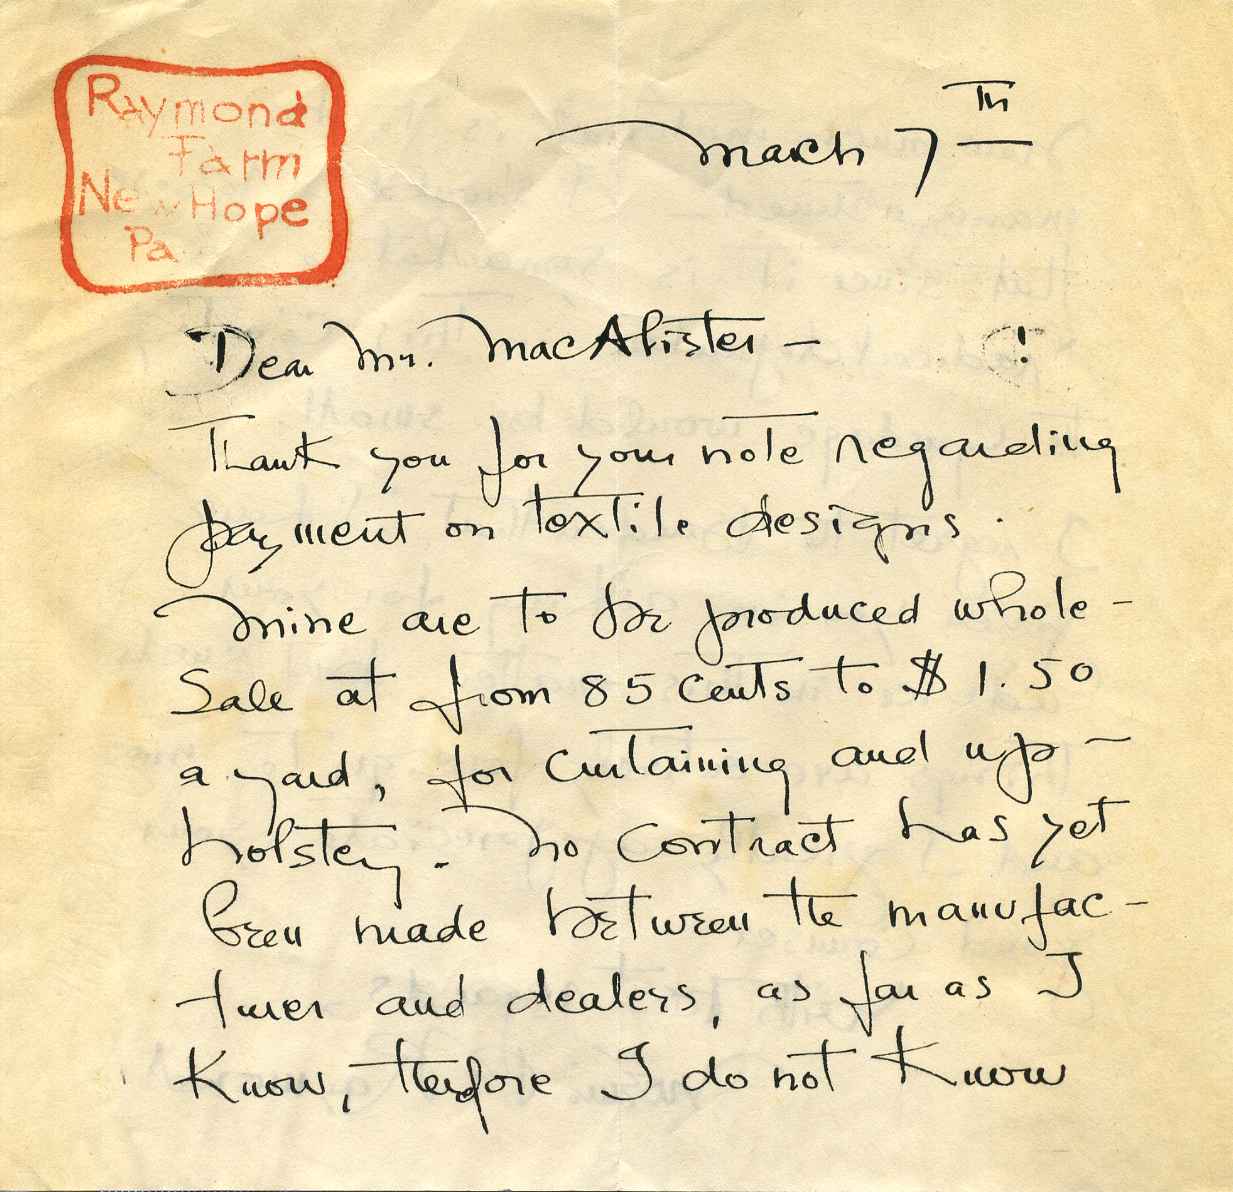 Raymond
Farm
New Hope
Pa
March 7th
Dear Mr. MacAlister – !
Thank you for your note regarding
payment on textile designs.
Mine are to be produced whole-
sale at from 85 cents to $1.50
a yard, for curtaining and up-
holstery. No contract has yet
been made between the manufac-
turer and dealers, as far as I
know, therefore I do not know